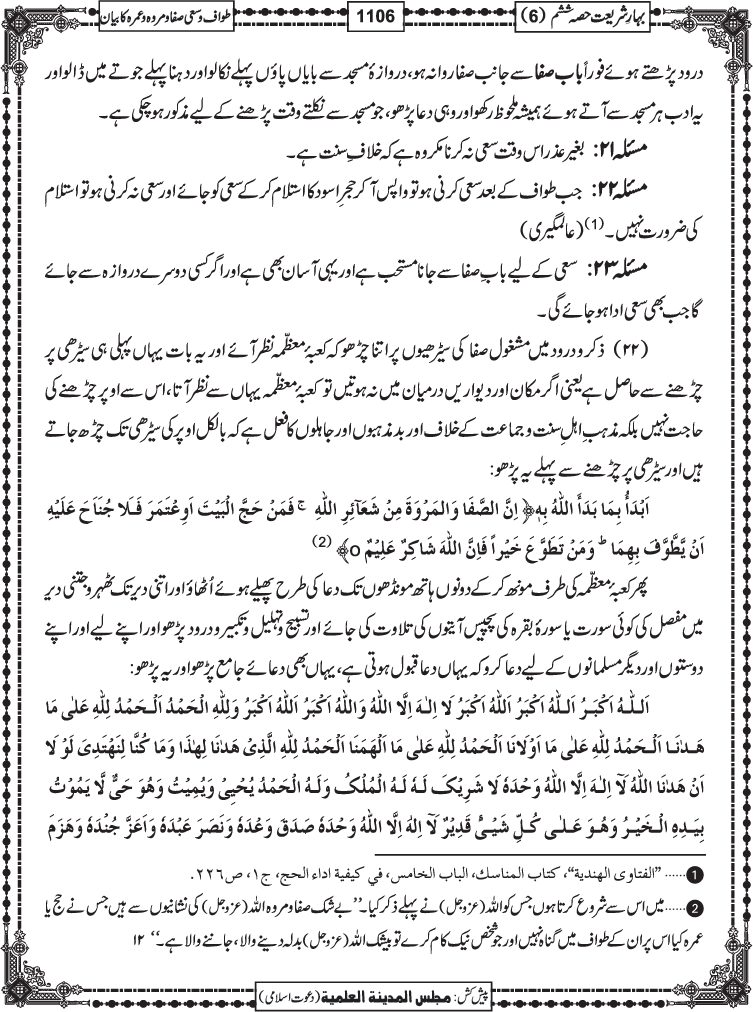 بہارِ شریعت حصہ ششم (6)
1106
طواف و سعی صفا و مروہ و عمرہ کا بیان
درود پڑھتے ہوئے فوراً بابِ صفا سے جانب صفا روانہ ہو، دروازۂ مسجد سے بایاں پاؤں پہلے نکالو اور دہنا پہلے جوتے میں ڈالو اور
یہ ادب ہر مسجد سے آتے ہوئے ہمیشہ ملحوظ رکھو اور وہی دعا پڑھو، جو مسجد سے نکلتے وقت پڑھنے کے لیے مذکور ہوچکی ہے۔
مسئلہ ۲۱: بغیر عذر اس وقت سعی نہ کرنا مکروہ ہے کہ خلافِ سنت ہے۔
مسئلہ ۲۲: جب طواف کے بعد سعی کرنی ہو تو واپس آکر حجرِ اسود کا استلام کرکے سعی کو جائے اور سعی نہ کرنی ہو تو استلام
کی ضرورت نہیں۔ (1) (عالمگیری)
مسئلہ ۲۳: سعی کے لیے بابِ صفا سے جانا مستحب ہے اور یہی آسان بھی ہے اور اگر کسی دوسرے دروازہ سے جائے
گا جب بھی سعی ادا ہوجائے گی۔
(۲۲) ذکر و درود میں مشغول صفا کی سیڑھیوں پر اتنا چڑھو کہ کعبۂ معظّمہ نظر آئے اور یہ بات یہاں پہلی ہی سیڑھی پر
چڑھنے سے حاصل ہے یعنی اگر مکان اور دیواریں درمیان میں نہ ہوتیں تو کعبۂ معظّمہ یہاں سے نظر آتا، اس سے اوپر چڑھنے کی
حاجت نہیں بلکہ مذہبِ اہلِ سنت و جماعت کے خلاف اور بدمذہبوں اور جاہلوں کا فعل ہے کہ بالکل اوپر کی سیڑھی تک چڑھ جاتے
ہیں اور سیڑھی پر چڑھنے سے پہلے یہ پڑھو:
اَبْدَأُ بِمَا بَدَأَ اللّٰهُ بِهٖ ﴿ اِنَّ الصَّفَا وَالْمَرْوَةَ مِنْ شَعَآئِرِ اللّٰهِ ۚ فَمَنْ حَجَّ الْبَيْتَ اَوِعْتَمَرَ فَـلَا جُنَاحَ عَلَيْهِ
اَنْ يَّطَّوَّفَ بِهِمَا ؕ وَمَنْ تَطَوَّعَ خَيْراً فَاِنَّ اللّٰهَ شَاكِرٌ عَلِيْمٌ o﴾ (2)
پھر کعبۂ معظّمہ کی طرف مونھ کرکے دونوں ہاتھ مونڈھوں تک دعا کی طرح پھیلے ہوئے اُٹھاؤ اور اتنی دیر تک ٹھہرو جتنی دیر
میں مفصل کی کوئی سورت یا سورۂ بقرہ کی پچیس آیتوں کی تلاوت کی جائے اور تسبیح و تہلیل و تکبیر و درود پڑھو اور اپنے لیے اور اپنے
دوستوں اور دیگر مسلمانوں کے لیے دعا کرو کہ یہاں دعا قبول ہوتی ہے، یہاں بھی دعائے جامع پڑھو اور یہ پڑھو:
اَللّٰهُ اَكْبَرُ اَللّٰهُ اَكْبَرُ اَللّٰهُ اَكْبَرُ لَا اِلٰهَ اِلَّا اللّٰهُ وَاللّٰهُ اَكْبَرُ اَللّٰهُ اَكْبَرُ وَلِلّٰهِ الْحَمْدُ اَلْحَمْدُ لِلّٰهِ عَلٰى مَا
هَدٰنَا اَلْحَمْدُ لِلّٰهِ عَلٰى مَا اَوْلَانَا اَلْحَمْدُ لِلّٰهِ عَلٰى مَا اَلْهَمَنَا اَلْحَمْدُ لِلّٰهِ الَّذِىْ هَدٰنَا لِهٰذَا وَمَا كُنَّا لِنَهْتَدِىَ لَوْ لَا
اَنْ هَدٰنَا اللّٰهُ لَآ اِلٰهَ اِلَّا اللّٰهُ وَحْدَهٗ لَا شَرِيْكَ لَهٗ لَهُ الْمُلْكُ وَلَهُ الْحَمْدُ يُحْيِىْ وَيُمِيْتُ وَهُوَ حَىٌّ لَّا يَمُوْتُ
بِيَدِهِ الْخَيْرُ وَهُوَ عَلٰى كُلِّ شَيْئٍ قَدِيْرٌ لَآ اِلٰهَ اِلَّا اللّٰهُ وَحْدَهٗ صَدَقَ وَعْدَهٗ وَنَصَرَ عَبْدَهٗ وَاَعَزَّ جُنْدَهٗ وَهَزَمَ
1 ...... "الفتاوى الهندية"، كتاب المناسك، الباب الخامس، في كيفية اداء الحج، ج١، ص٢٢٦.
2 ...... میں اس سے شروع کرتا ہوں جس کو اللہ (عزوجل) نے پہلے ذکر کیا۔ ''بے شک صفا و مروہ اللہ (عزوجل) کی نشانیوں سے ہیں جس نے حج یا
عمرہ کیا اس پر ان کے طواف میں گناہ نہیں اور جو شخص نیک کام کرے تو بیشک اللہ (عزوجل) بدلہ دینے والا، جاننے والا ہے۔'' ۱۲
پیش کش: مجلس المدینة العلمیة (دعوتِ اسلامی)